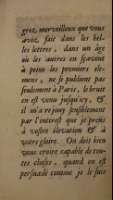 grez, merveilleux que vous
avez, fait dans les bel-
les lettres, dans un âge
où les autres en sçavent
à peine les premiers ele-
mens, ne se publient pas
seulement à Paris, le bruit
en est venu jusqu'icy, &
il m'a rejoüy sensiblement
par l'interest que je prens
à vostre élevation & à
vostre gloire. On doit bien
vous croire capable de tou-
tes choses, quand on est
persuadé comme je le suis